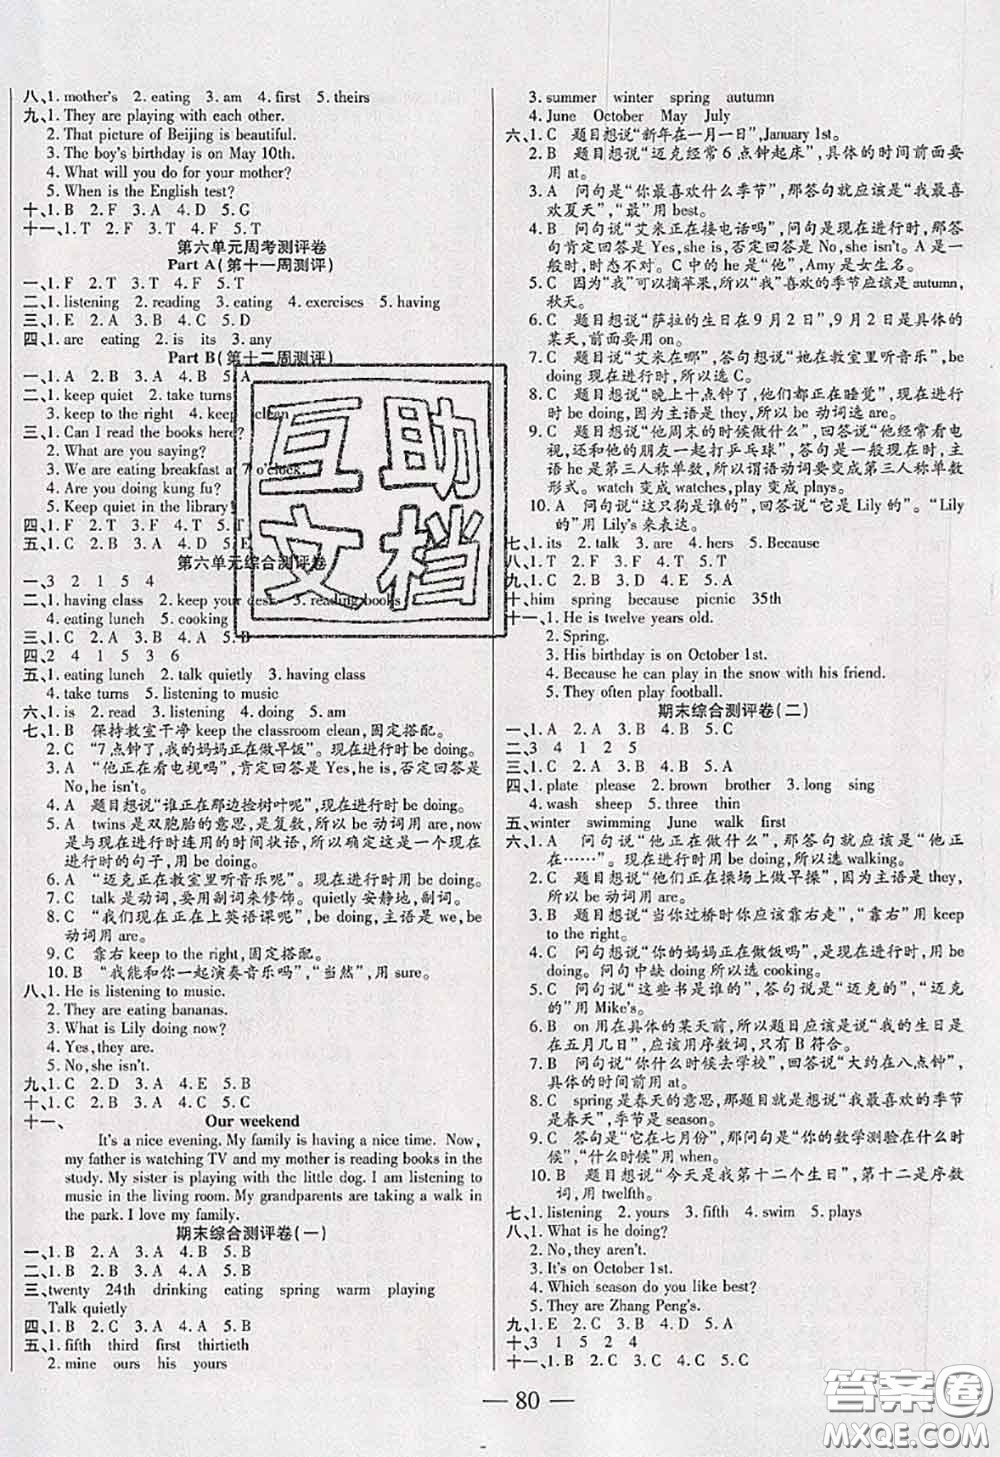 八、1. mother's 2. eating 3. am 4. first 5. theirs
九、1. They are playing with each other.
2. That picture of Beijing is beautiful.
3. The boy's birthday is on May 10th.
4. What will you do for your mother?
5. When is the English test?
十、1. B 2. F 3. A 4. D 5. G
十一、1. T 2. F 3. T 4. T 5. T
第六单元周考测评卷
Part A(第十一周测评)
一、1. F 2. T 3. F 4. F 5. T
二、1. listening 2. reading 3. eating 4. exercises 5. having
三、1. E 2. A 3. B 4. C 5. D
四、1. are eating 2. is its 3. any
Part B(第十二周测评)
一、1. A 2. B 3. A 4. B 5. A
二、1. keep quiet 2. take turns
3. keep to the right 4. keep clean
三、1. Can I read the books here?
2. What are you saying?
3. We are eating breakfast at 7 o'clock.
4. Are they doing kung fu?
5. Keep quiet in the library!
四、1. F 2. T 3. F 4. T 5. T
五、1. C 2. B 3. A 4. D 5. E
第六单元综合测评卷
一、3 2 1 5 4
二、1. having class 2. keep your desk 3. reading books
4. eating lunch 5. cooking
三、1. C 2. B 3. A 4. B 5. B
四、2 4 1 5 3 6
五、1. eating lunch 2. talk quietly 3. having class
4. take turns 5. listening to music
六、1. is 2. read 3. listening 4. doing 5. am
七、1. B 保持教室干净 keep the classroom clean,固定搭配。
2. C “7点钟了,我的妈妈正在做早饭”。现在进行时 be doing.
3. A “他正在看电视吗”,肯定回答是 Yes, he is,否定回答是
No, he isn't.
4. A 题目想说“谁正在那边捡树叶呢”,现在进行时 be doing.
5. A twins 是双胞胎的意思,是复数,所以 be 动词用 are, now
是与现在进行时连用的时间状语,所以确定这是一个现在
进行时的句子,用 be doing.
6. A “迈克正在教室里听音乐呢”。现在进行时 be doing.
7. B talk 是动词,要用副词来修饰。quietly 安静地,副词。
8. C “我们现在正在上英语课呢”, be doing,主语是 we, be
动词用 are.
9. C 靠右 keep to the right,固定搭配。
10. B “我能和你一起演奏音乐吗”,“当然”,用 sure。
八、1. He is listening to music.
2. They are eating bananas.
3. What is Lily doing now?
4. Yes, they are.
5. No, she isn't.
九、1. C 2. D 3. A 4. E 5. B
十、1. C 2. C 3. A 4. B 5. B
十一、 Our weekend
It's a nice evening. My family is having a nice time. Now,
my father is watching TV and my mother is reading books in the
study. My sister is playing with the little dog. I am listening to
music in the living room. My grandparents are taking a walk in
the park. I love my family.
期末综合测评卷(一)
一、1. B 2. A 3. A 4. B 5. B
二、1. B 2. B 3. A 4. A 5. B
三、twenty 24th drinking eating spring warm playing
Talk quietly
四、1. B 2. C 3. A 4. B 5. B
五、1. fifth third first thirtieth
2. mine ours his yours
3. summer winter spring autumn
4. June October May July
六、1. C 题目想说“新年在一月一日”,January 1st。
2. B 题目想说“迈克经常6点钟起床”,具体的时间前面要
用 at。
3. A 问句是“你最喜欢什么季节”,那答句就应该是“我最喜
欢夏天”,“最”用 best。
4. B 问句说“艾米正在接电话吗”,问句是一般疑问句,那答
句肯定回答应该是 Yes, she is,否定回答是 No, she isn't。A 是一
般时,时态不对。C 中的 he 是“他”, Amy 是女生名。
5. C 因为“我”可以摘苹果,所以“我”喜欢的季节应该是 autumn,
秋天。
6. C 题目想说“萨拉的生日在9月2日”,9月2日是具体的某
一天,前面要用 on。
7. C 问句说“艾米在哪”,答句想说“她在教室里听音乐”, be
doing 现在进行时,所以选 C。
8. C 题目想说“晚上十点钟了,他们都正在睡觉”,现在进行
时 be doing,因为主语是 they,所以 be 动词选 are。
9. C 问句说“他周末的时候做什么”,回答说“他经常看电
视,还和他的朋友们一起打乒乓球”,所以时态是一般时,主
语 he 是第三人称单数,所以谓语动词要变成第三人称单数
形式。watch 变成 watches, play 变成 plays。
10. A 问句说“这只狗是谁的”,回答说“它是 Lily 的”。“Lily
的”用 Lily's 来表达。
七、1. its 2. talk 3. are 4. hers 5. Because
八、1. T 2. F 3. F 4. T 5. F
九、1. C 2. D 3. B 4. E 5. A
十、him spring because picnic 35th
十一、1. He is twelve years old.
2. Spring.
3. His birthday is on October 1st.
4. Because he can play in the snow with his friend.
5. They often play football.
期末综合测评卷(二)
一、1. A 2. A 3. B 4. B 5. C
二、3 4 1 2 5
三、1. C 2. B 3. A 4. B 5. A
四、1. plate please 2. brown brother 3. long sing
4. wash sheep 5. three thin
五、winter swimming June walk first
六、1. A 问句说“他正在做什么”,那答句就应该是“他正
在……”。现在进行时用 be doing,所以选 walking。
2. C 题目想说“他们正在操场上做早操”,因为主语是 they,
所以 be 动词用 are。
3. B 题目想说“当你过桥时你应该靠右走”,“靠右”用 keep
to the right。
4. C 问句想说“你的妈妈正在做饭吗”,是现在进行时,用 be
doing。问句中缺 doing 所以选 cooking。
5. C 问句想说“这些书是谁的”,答句说是“迈克的”,“迈克
的”用 Mike's。
6. B on 用在具体的某天前,所以题目应该是说“我的生日是
在五月几日”,那应该用序数词,只有 B 符合。
7. B 问句说“你什么时候去学校”,回答说“大约在八点钟”,
具体的时间前用 at。
8. C spring 是春天的意思,题目想说“我一年最喜欢的季节
是春天”,季节是 season。
9. C 答句是“它在七月份”,那问句是“你的数学测验在什么时
候”,“什么时候”用 when。
10. B 题目想说“今天是我第十二个生日”,第十二是序数
词,用 twelfth。
七、1. listening 2. yours 3. fifth 4. swim 5. plays
八、1. What is he doing?
2. No, they aren't.
3. It's on October 1st.
4. Which season do you like best?
5. They are Zhang Peng's.
九、1. E 2. C 3. B 4. D 5. A
十、3 1 5 2 4
十一、1. B 2. C 3. B 4. C 5. A
互助
文档
80
答案卷
MXQE.COM